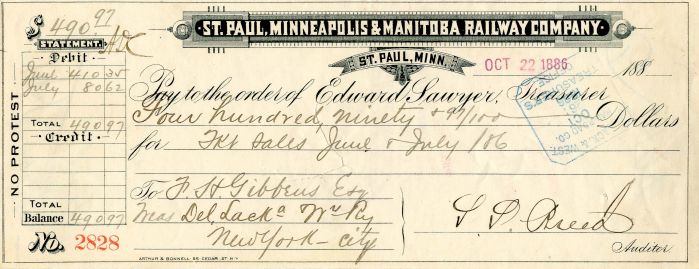 $ 490.97
STATEMENT.
Debit
June 410 35
July 80 62
TOTAL 490 97
Credit
TOTAL
Balance 490 97
No. 2828
NO PROTEST
ST. PAUL, MINNEAPOLIS & MANITOBA RAILWAY COMPANY.
ST. PAUL, MINN.
OCT 22 1886
188
Pay to the order of Edward Sawyer, Treasurer
Four hundred ninety & 97/100 Dollars
for Tkt Sales June & July /86
To F. H. Gibbens Esq
Treas Del. Lacka Wn Ry
New York - City
Auditor.
ARTHUR & BONNELL · 55 · CEDAR · ST. N.Y.